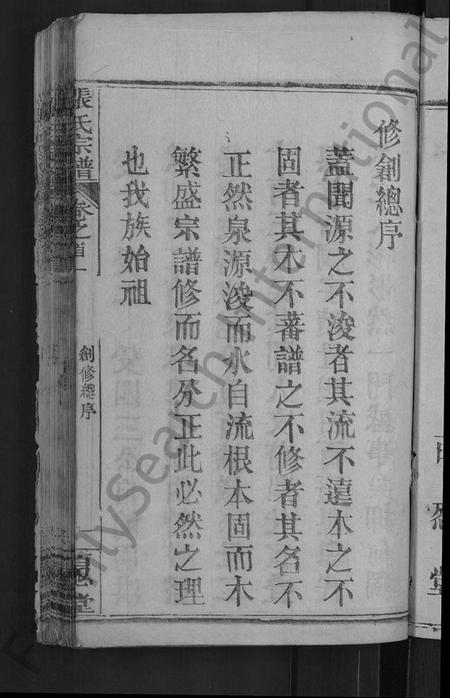 修創總序
蓋聞源之不浚者其流不遠本之不
固者其木不蕃譜之不修者其名不
正然泉源浚而水自流根本固而木
繁盛宗譜修而名分正此必然之理
也我族始祖
張氏宗譜
卷之首一
創修總序
百忍堂
忍堂
FamilySearch International